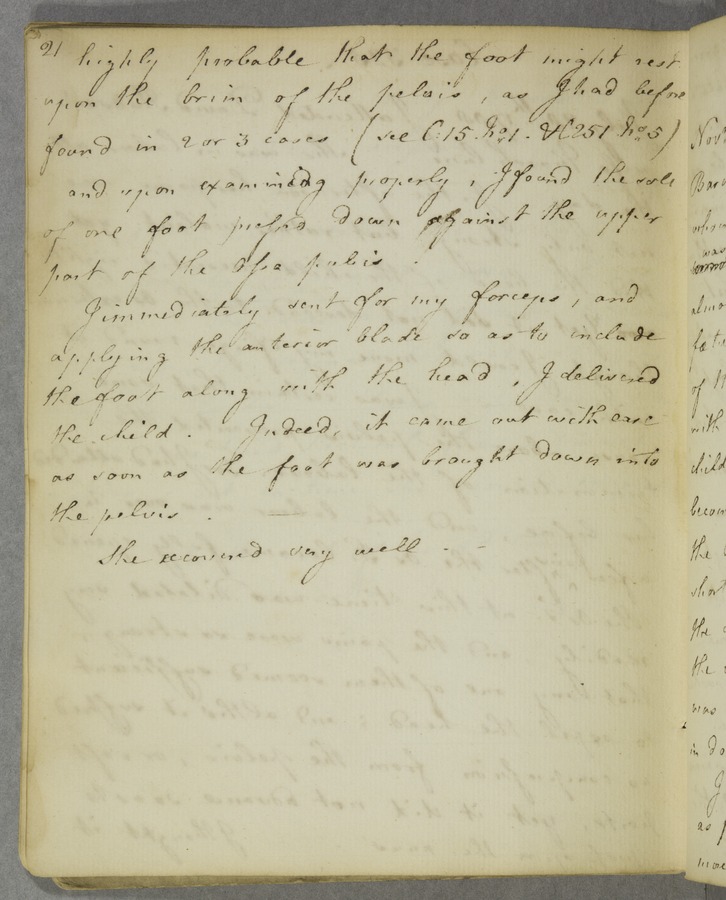 21
highly probable that the foot might rest
upon the brim of the pelvis, as I had before
found in 2 or 3 cases (see C. 15. No. 1. & C 251 No. 5)
and upon examining properly, I found the sole
of one foot press'd down against the upper
part of the Ossa pubis.
I immediately sent for my forceps, and
applying the anterior blade so as to include
the foot along with the head, I delivered
the child. Indeed, it came out with ease
as soon as the foot was brought down into
the pelvis.
She recovered very well.
Novr
was
almo
of
with
child
becom
the
short
the
the
was
in do
as
more